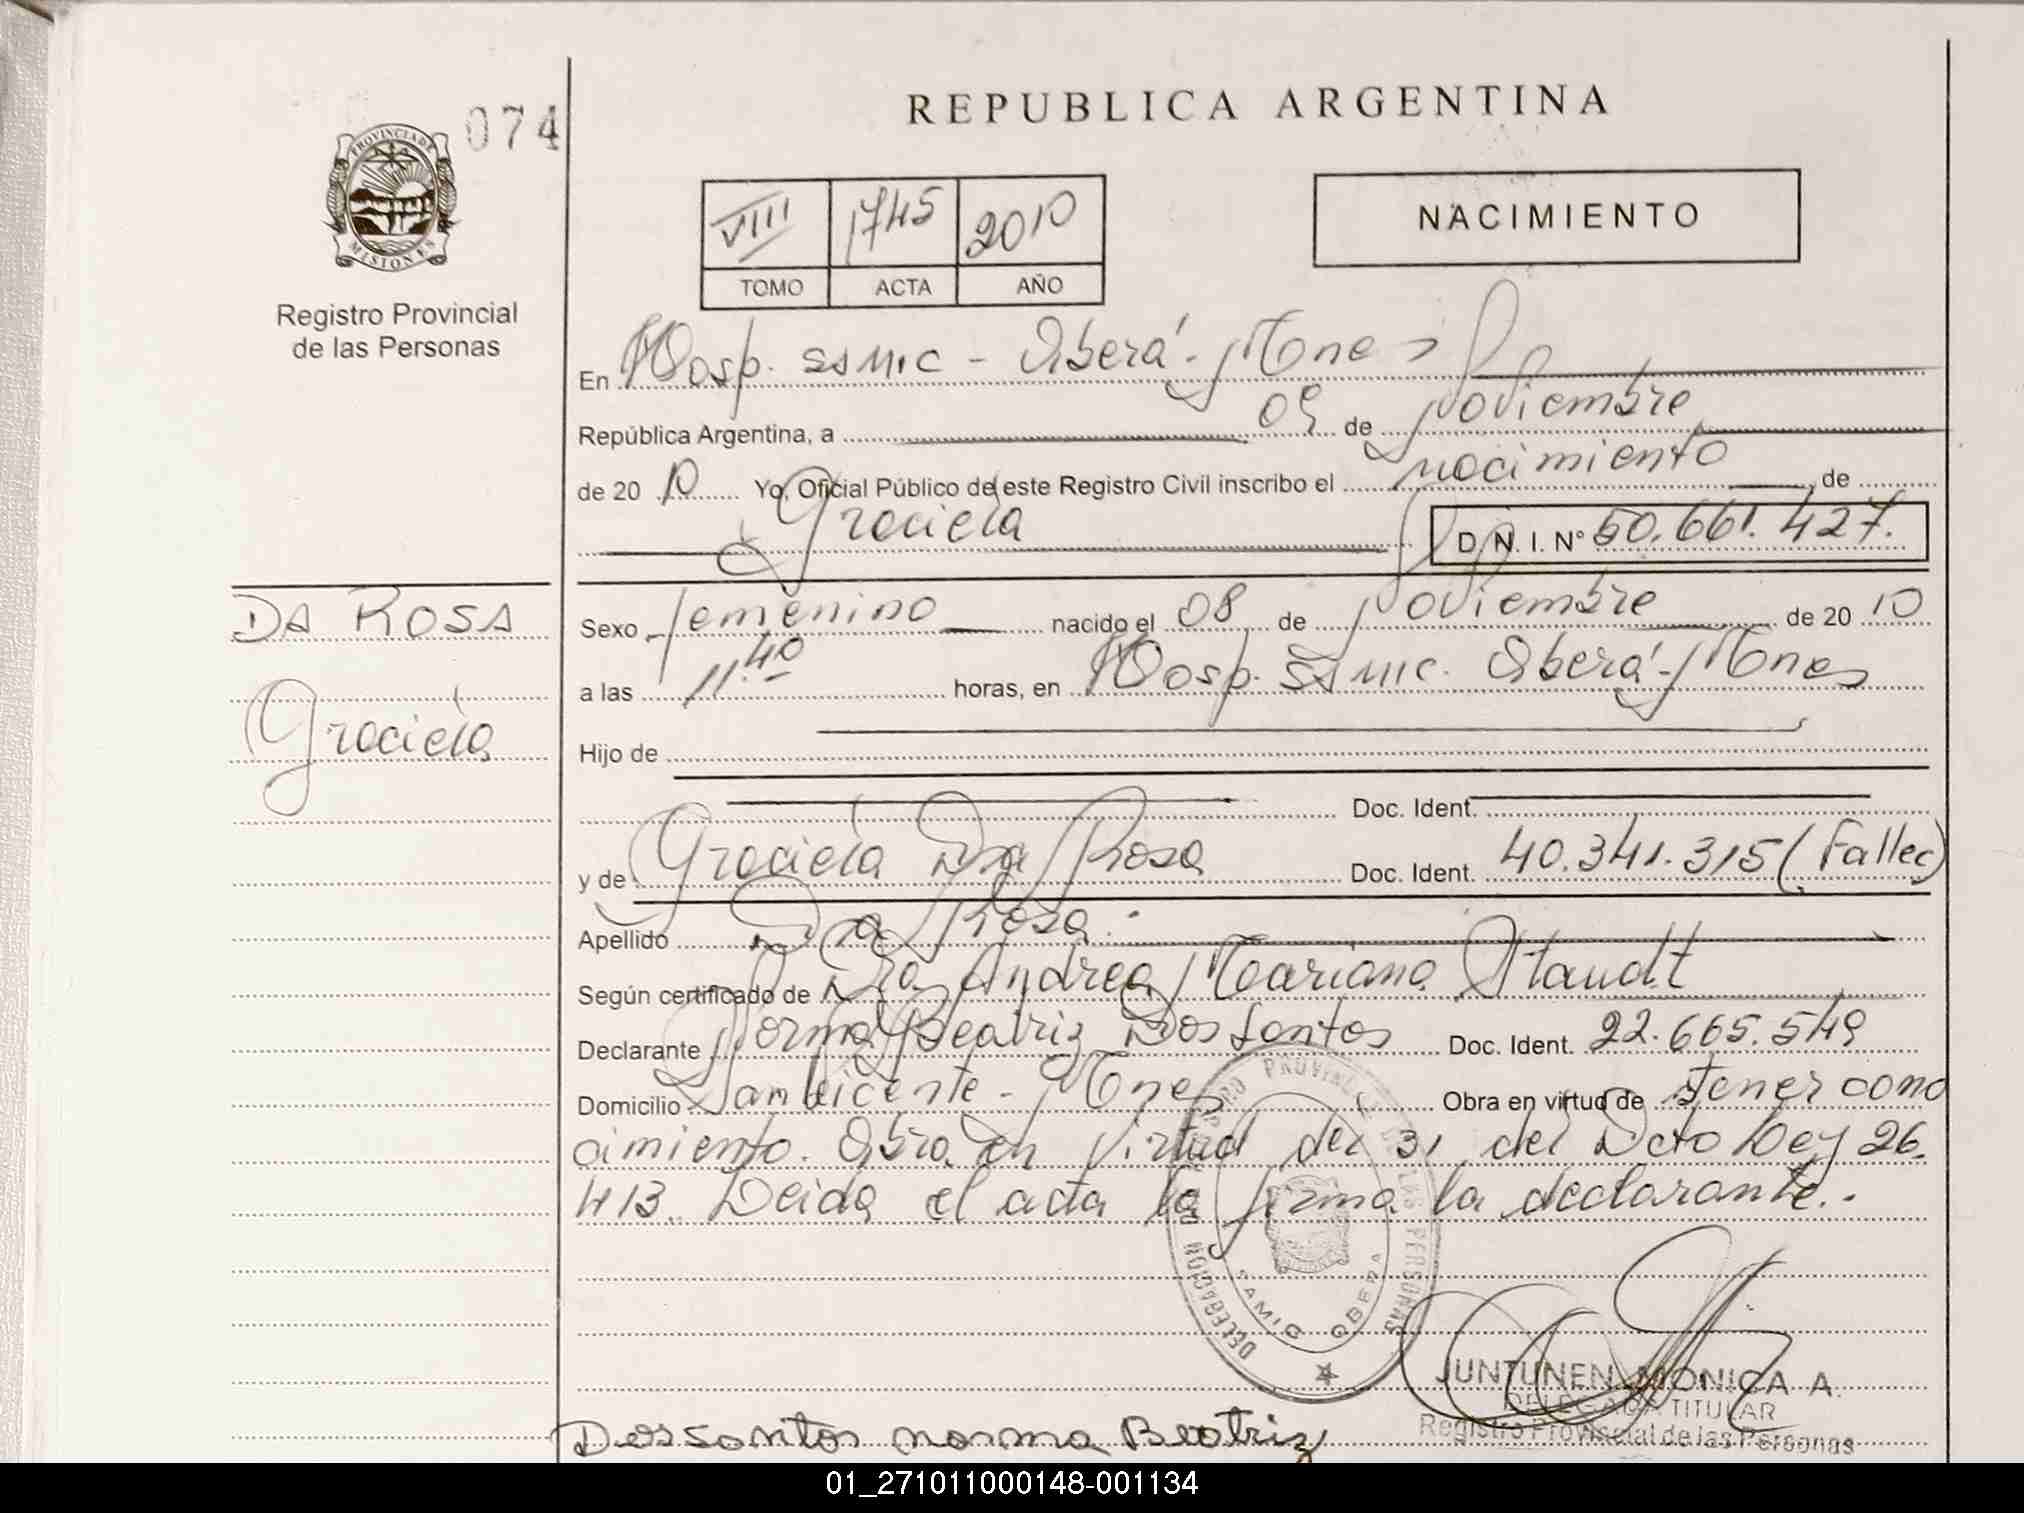 REPUBLICA ARGENTINA
074
PROVINCIA DE
MISIONES
Registro Provincial
de las Personas
VIII 1745 2010
TOMO ACTA AÑO
NACIMIENTO
En Hosp. SAMIC - Oberá - Mnes
República Argentina, a 09 de Noviembre
de 2010 Yo, Oficial Público de este Registro Civil inscribo el nacimiento de
Graciela
D. N. I. Nº 50.661.427.
DA ROSA
Graciela
Sexo femenino nacido el 08 de Noviembre de 2010
a las 11.40 horas, en Hosp. SAMIC. Oberá - Mnes
Hijo de
Doc. Ident.
y de Graciela Da Rosa Doc. Ident. 40.341.315 (Fallec)
Apellido Da Rosa.
Según certificado de Dra. Andrea Mariana Staudt
Declarante Norma Beatriz Dos Santos Doc. Ident. 22.665.549
Domicilio San Vicente - Mnes Obra en virtud de tener cono
cimiento. Obra en virtud del 31 del Dcto Ley 26.
413. Leida el acta la firma la declarante.-
REGISTRO PROVINCIAL DE LAS PERSONAS
DELEGACION
SAMIC OBERA
JUNTUNEN MONICA A.
DELEGADA TITULAR
Registro Provincial de las Personas
Dossantos norma Beatriz
01_271011000148-001134